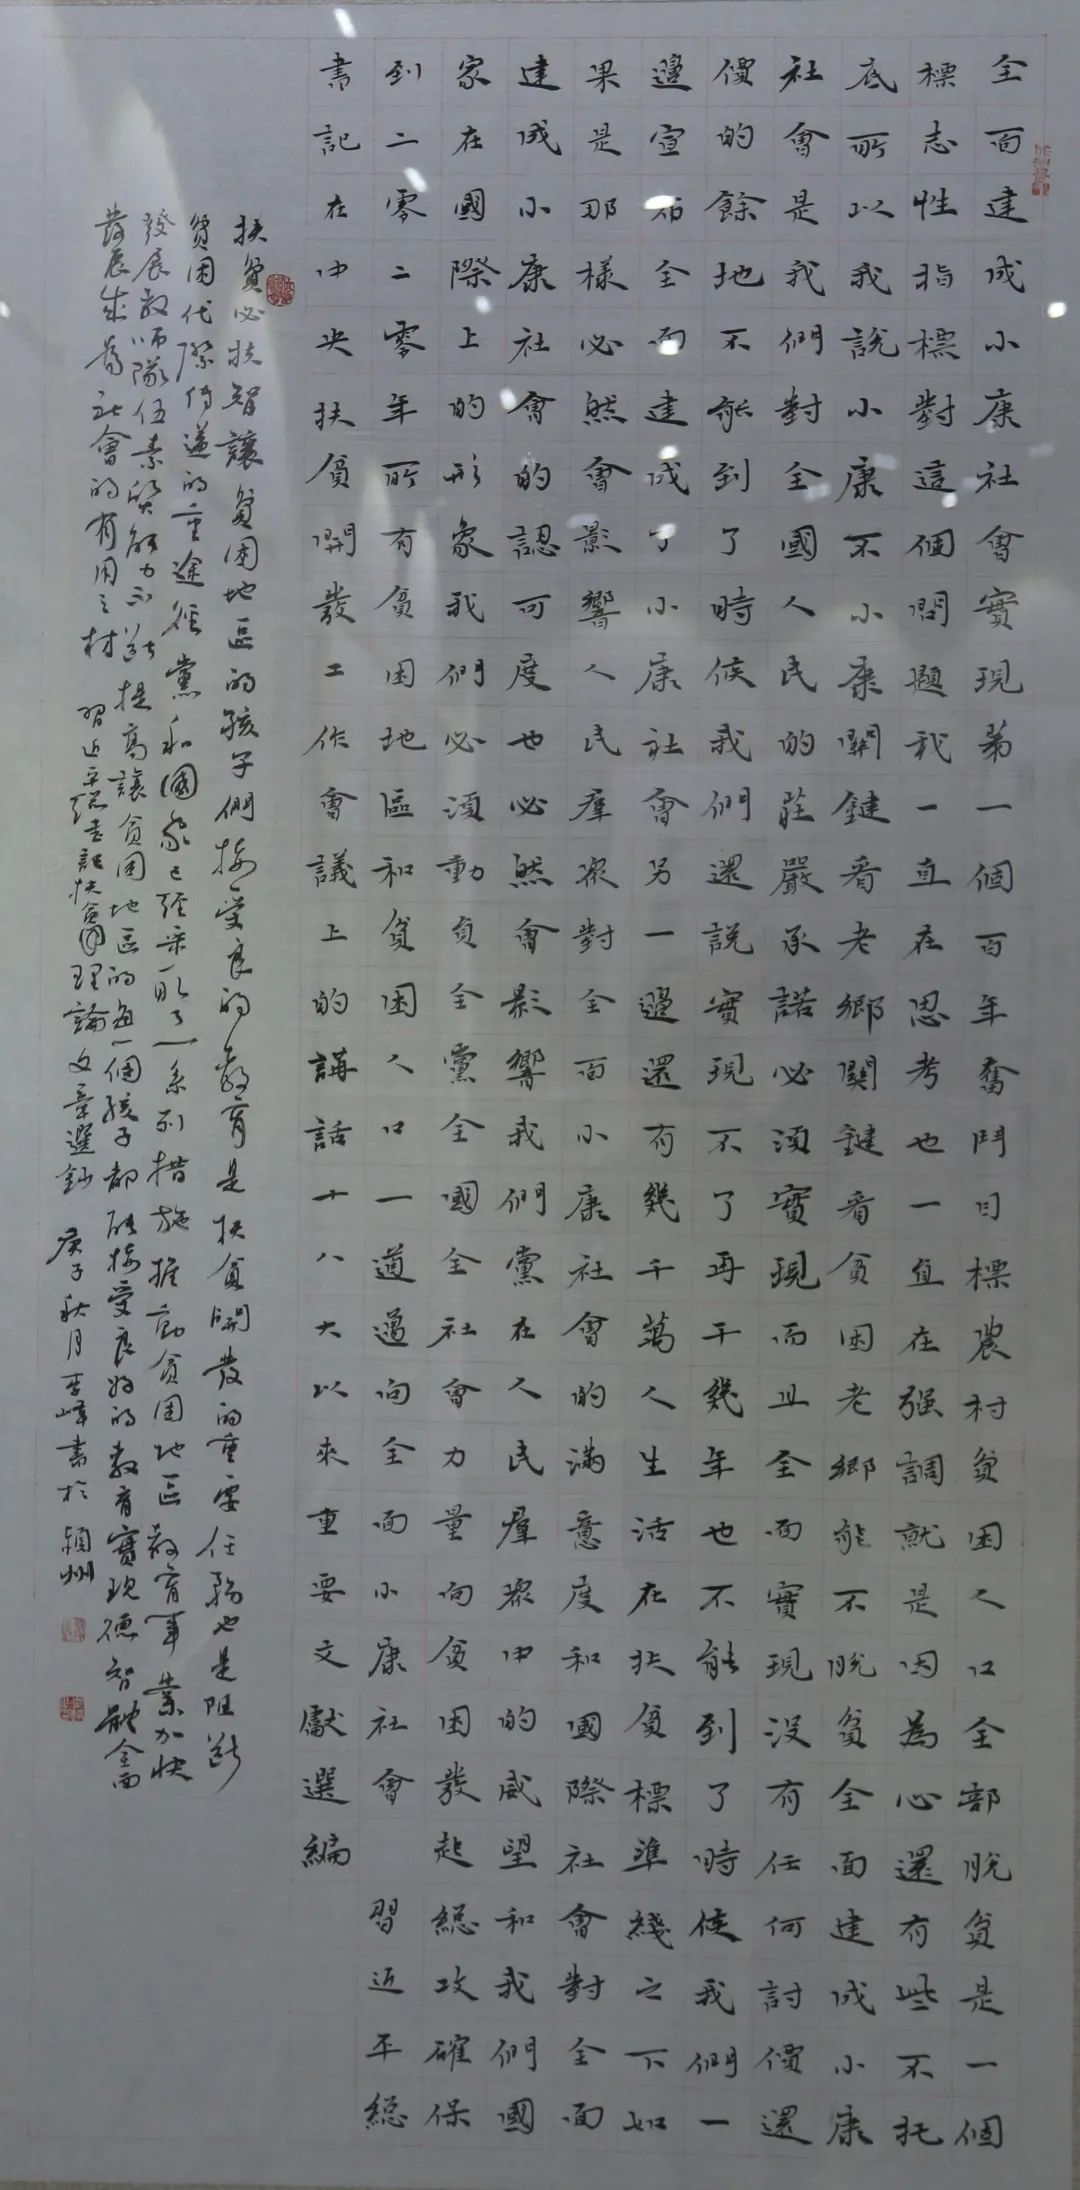 全面建成小康社會實現第一個百年奮鬥目標農村貧困人口全部脫貧是一個
標志性指標對這個問題我一直在思考也一直在强調就是因為心還有些不托
底所以我說小康不小康關鍵看老鄉關鍵看貧困老鄉能不脫貧全面建成小康
社會是我們對全國人民的莊嚴承諾必須實現而且全面實現没有任何討價還
價的餘地不能到了時候我們還說實現不了再干幾年也不能到了時候我們一
邊宣布全面建成了小康社會另一邊還有幾千萬人生活在扶貧標準綫之下如
果是那樣必然會影響人民羣衆對全面小康社會的滿意度和國際社會對全面
建成小康社會的認可度也必然會影響我們黨在人民羣衆中的威望和我們國
家在國際上的形象我們必須動員全黨全國全社會力量向貧困發起總攻確保
到二零二零年所有貧困地區和貧困人口一道邁向全面小康社會 習近平總
書記在中央扶貧開發工作會議上的講話十八大以來重要文獻選編
扶貧必扶智讓貧困地區的孩子們接受良的教育是扶貧開發的重要任務也是阻斷
貧困代際傳遞的重途徑黨和國家已經采取了一系列措施推動貧困地區教育事業加快
發展教師隊伍素質能力不斷提高讓貧困地區的每一個孩子都能接受良好的教育實現德智體全面
發展成爲社會的有用之材 習近平總書記扶貧理論文章選鈔 庚子秋月李峰書於潁州